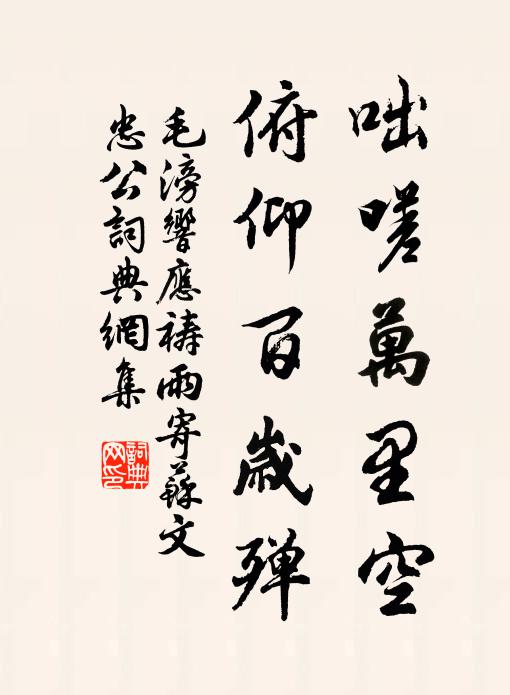 咄嗟萬里空
俯仰百歲殫
毛滂響應禱雨寄蘇文
忠公詞典網集
詞典網印